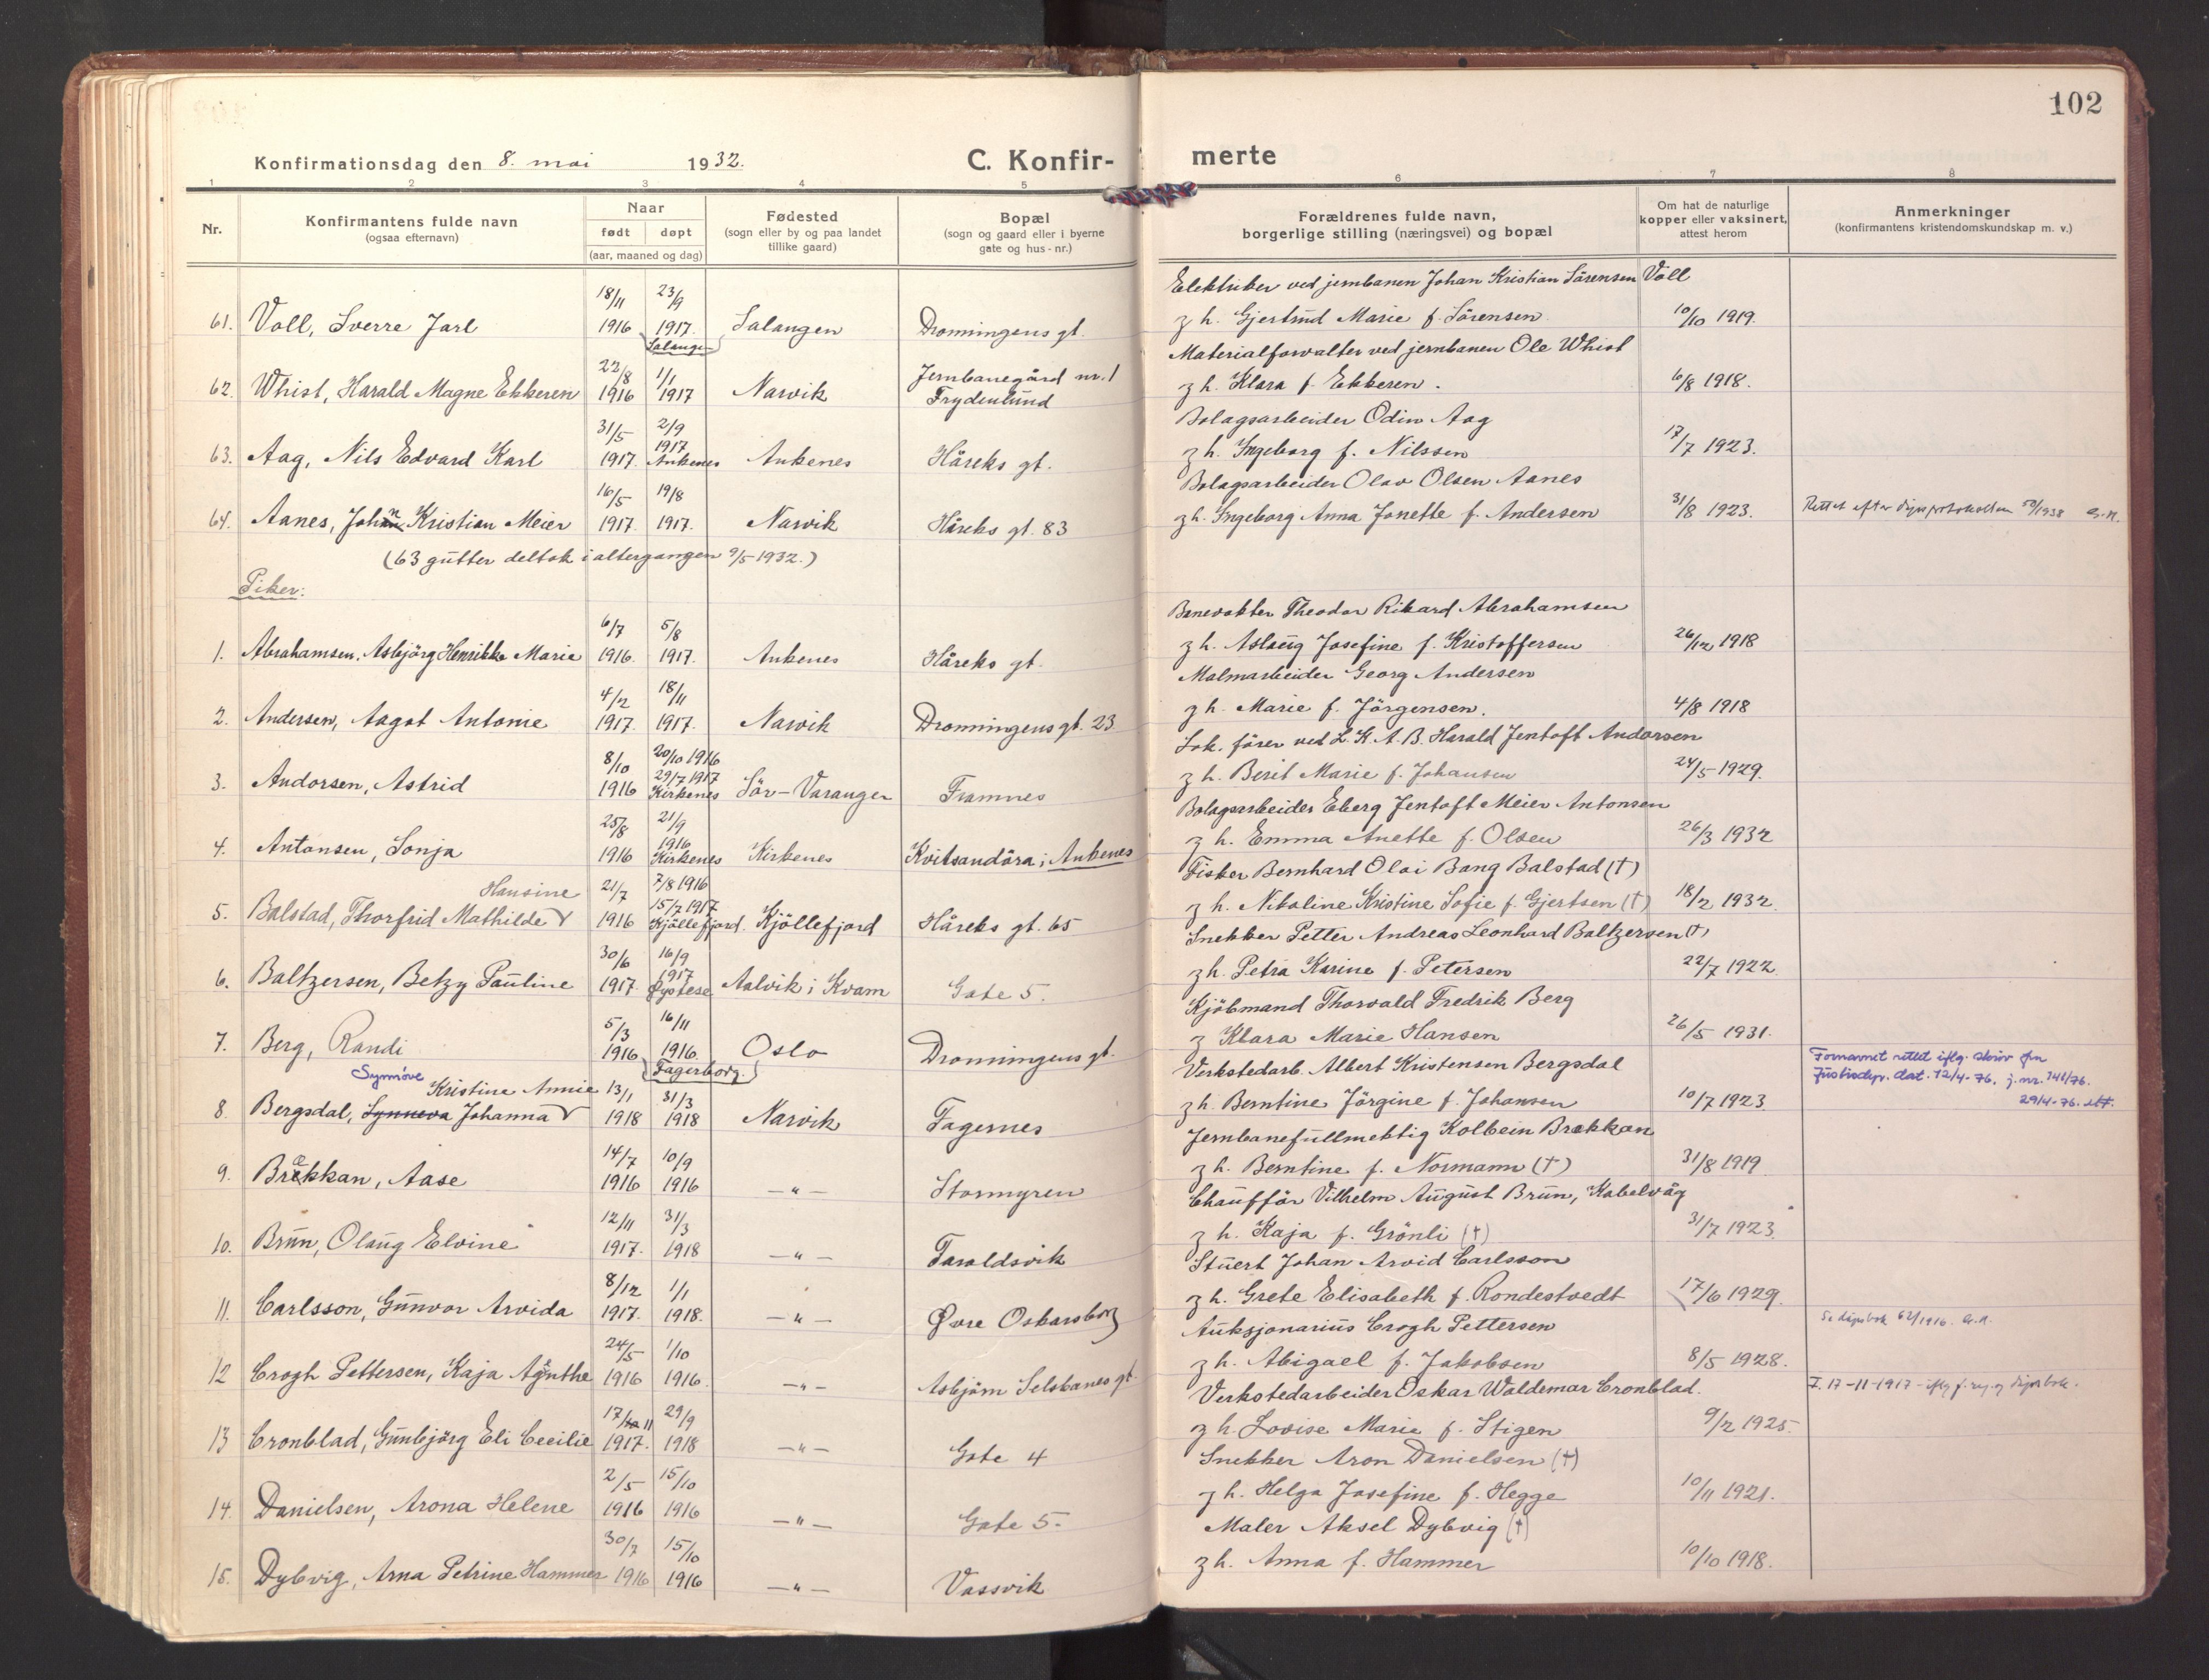 102
Konfirmationsdag den 8. mai 1932. C. Konfirmerte
1 2 3 4 5 6 7 8
Nr. Konfirmantens fulde navn (ogsaa efternavn) Naar født døpt (aar, maaned og dag) Fødested (sogn eller by og paa landet tillike gaard) Bopæl (sogn og gaard eller i byerne gate og hus-nr.) Forældrenes fulde navn, borgerlige stilling (næringsvei) og bopæl Om hat de naturlige kopper eller vaksinert, attest herom Anmerkninger (konfirmantens kristendomskundskap m. v.)
18/11 23/9 Elektriker ved jernbanen Johan Kristian Sörensen Voll
61. Voll, Sverre Jarl 1916 1917. Salangen Salangen Dronningens gt. z h. Gjertrud Marie f. Sörensen. 10/10 1919.
22/8 1/1 Materialforvalter ved jernbanen Ole Whist
62. Whist, Harald Magne Ekkeren 1916 1917 Narvik Jernbanegård nr. 1 Frydenlund z h. Klara f. Ekkeren. 6/8 1918.
31/5 2/9 Bolagsarbeider Odin Aag
63. Aag, Nils Edvard Karl 1917. 1917 Ankenes Ankenes Håreks gt. z h. Ingeborg f. Nilssen 17/7 1923.
16/5 19/8 Bolagsarbeider Olav Olsen Aanes
64. Aanes, Johan Kristian Meier 1917. 1917. Narvik Håreks gt. 83 z h. Ingeborg Anna Jonette f. Andersen 31/8 1923. Rettet efter dåpsprotokollen
(63 gutter deltok i altergangen 9/5 1932.)
Piker:
6/7 5/8 Banevokter Theodor Rikard Abrahamsen
1. Abrahamsen, Asbjörg Henrikke Marie 1916. 1917. Ankenes Håreks gt. z h. Aslaug Josefine f. Kristoffersen 26/12 1918
4/2 18/11 Malmarbeider Georg Andersen
2. Andersen, Aagot Antonie 1917. 1917. Narvik Dronningens gt. 23 z h. Marie f. Jörgensen. 4/8 1918
8/10 20/10 1916 Lok. förer ved L.K.A.B. Harald Jentoft Andorsen
3. Andorsen, Astrid 1916 29/7 1917 Kirkenes Sör-Varanger Framnes z h. Berit Marie f. Johansen 24/5 1929.
25/8 21/9 Bolagsarbeider Eberg Jentoft Meier Antonsen
4. Antonsen, Sonja 1916 1916 Kirkenes Kirkenes Kvitsandöra i Ankenes z h. Emma Anette f. Olsen 26/3 1932
Hansine 21/7 7/8 1916 Fisker Bernhard Olai Bang Balstad (†)
5. Balstad, Thorfrid Mathilde V 1916 15/7 1917 Kjöllefjord. Kjöllefjord Håreks gt. 65 z h. Nikoline Kristine Sofie f. Gjertsen (†) 18/2 1932.
30/6 16/9 Snekker Petter Andreas Leonhard Baltzersen (†)
6. Baltzersen, Betzy Pauline 1917. 1917 Øystese Aalvik i Kvam Gate 5. z h. Petra Karine f. Petersen 22/7 1922.
5/3 16/11 Kjöbmand Thorvald Fredrik Berg
7. Berg, Randi 1916 1916. Fagerborg. Oslo Dronningens gt. z Klara Marie Hansen 26/5 1931.
Synnöve Kristine Annie 13/1 31/3 Verkstedarb. Albert Kristensen Bergsdal Fornavnet rettet iflg. skriv fra Justisdep. dat. 12/4-76. j. nr. 741/76.
8. Bergsdal, Synneva Johanna V 1918 1918 Narvik Fagernes z h. Berntine Jörgine f. Johansen 10/7 1923 29/4-76.
14/7 10/9 Jernbanefullmektig Kolbein Brækkan
9. Brækkan, Aase 1916 1916 —„— Stormyren z h. Berntine f. Normann (†) 31/8 1919
12/11 31/3 Chaufför Vilhelm August Brun, Kabelvåg
10. Brun, Olaug Elvine 1917. 1918 —„— Taraldsvik z h. Kaja f. Grönli (†) 31/7 1923.
8/12 1/1 Stuert Johan Arvid Carlsson
11. Carlsson, Gunvor Arvida 1917. 1918. —„— Øvre Oskarsborg z h. Grete Elisabeth f. Rondestvedt 17/6 1929.
24/5 1/10 Auksjonarius Crogh Pettersen Se dåpsbok 62/1916.
12 Crogh Pettersen, Kaja Agnthe 1916 1916. —„— Asbjörn Selsbanes gt. z h. Abigael f. Jakobsen 8/5 1928.
17/11 29/9 Verkstedarbeider Oskar Waldemar Cronblad. F. 17-11-1917 - iflg. f. reg. og dåpsbok.
13 Cronblad, Gunbjörg Eli Cecilie 1917. 1918 —„— Gate 4 z h. Lovise Marie f. Stigen 9/2 1925.
2/5 15/10 Snekker Aron Danielsen (†)
14. Danielsen, Arona Helene 1916 1916 —„— Gate 5. z h. Helga Josefine f. Hegge 10/11 1921.
30/7 15/10 Maler Aksel Dybvig (†)
15. Dybvig, Arna Petrine Hammer 1916 1916 —„— Vassvik z h. Anna f. Hammer 10/10 1918.